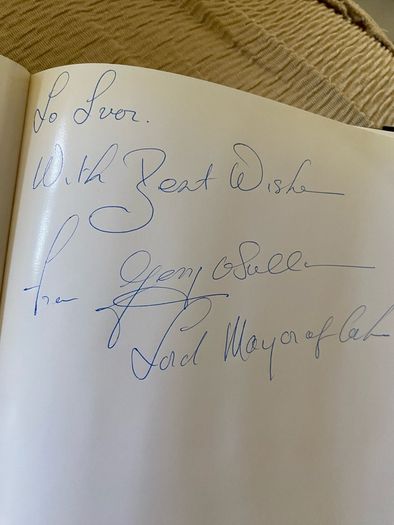 To Ivor.
With Best Wishes
from Gerry O'Sullivan
Lord Mayor of Cork